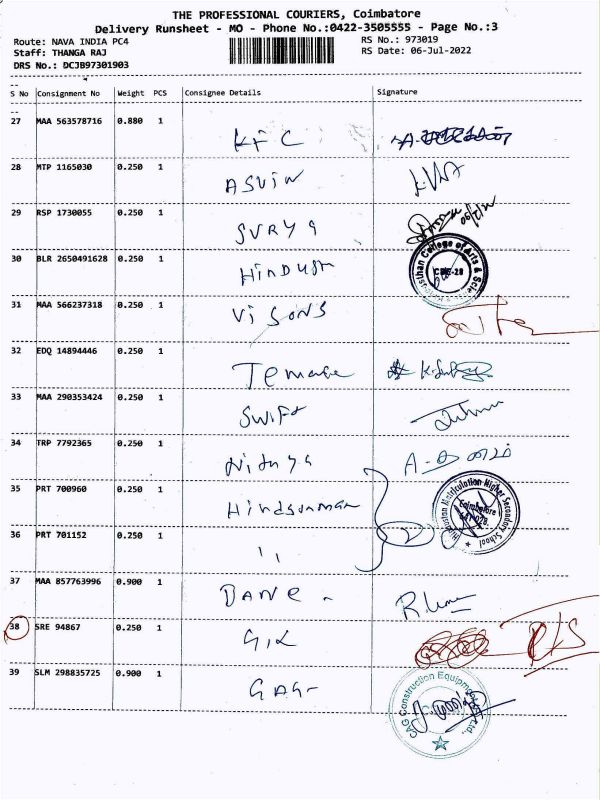 THE PROFESSIONAL COURIERS, Coimbatore
Delivery Runsheet - MO - Phone No.:0422-3505555 - Page No.:3
Route: NAVA INDIA PC4 RS No.: 973019
Staff: THANGA RAJ RS Date: 06-Jul-2022
DRS No.: DCJB97301903
S No Consignment No Weight PCS Consignee Details Signature
27 MAA 563578716 0.880 1 KFC
28 MTP 1165030 0.250 1 ASViN
29 RSP 1730055 0.250 1 SURYA
30 BLR 2650491628 0.250 1 HiNDUSH
College of Arts & Scie
31 MAA 566237318 0.250 1 Vi SONS
32 EDQ 14894446 0.250 1
33 MAA 290353424 0.250 1 SWiFt
34 TRP 7792365 0.250 1 Nithya
35 PRT 700960 0.250 1
Hindusthan Matriculation Higher Secondary School
Coimbatore
641 028.
36 PRT 701152 0.250 1 ''
37 MAA 857763996 0.900 1
38 SRE 94867 0.250 1
39 SLM 298835725 0.900 1 GAG-
Construction Equipment